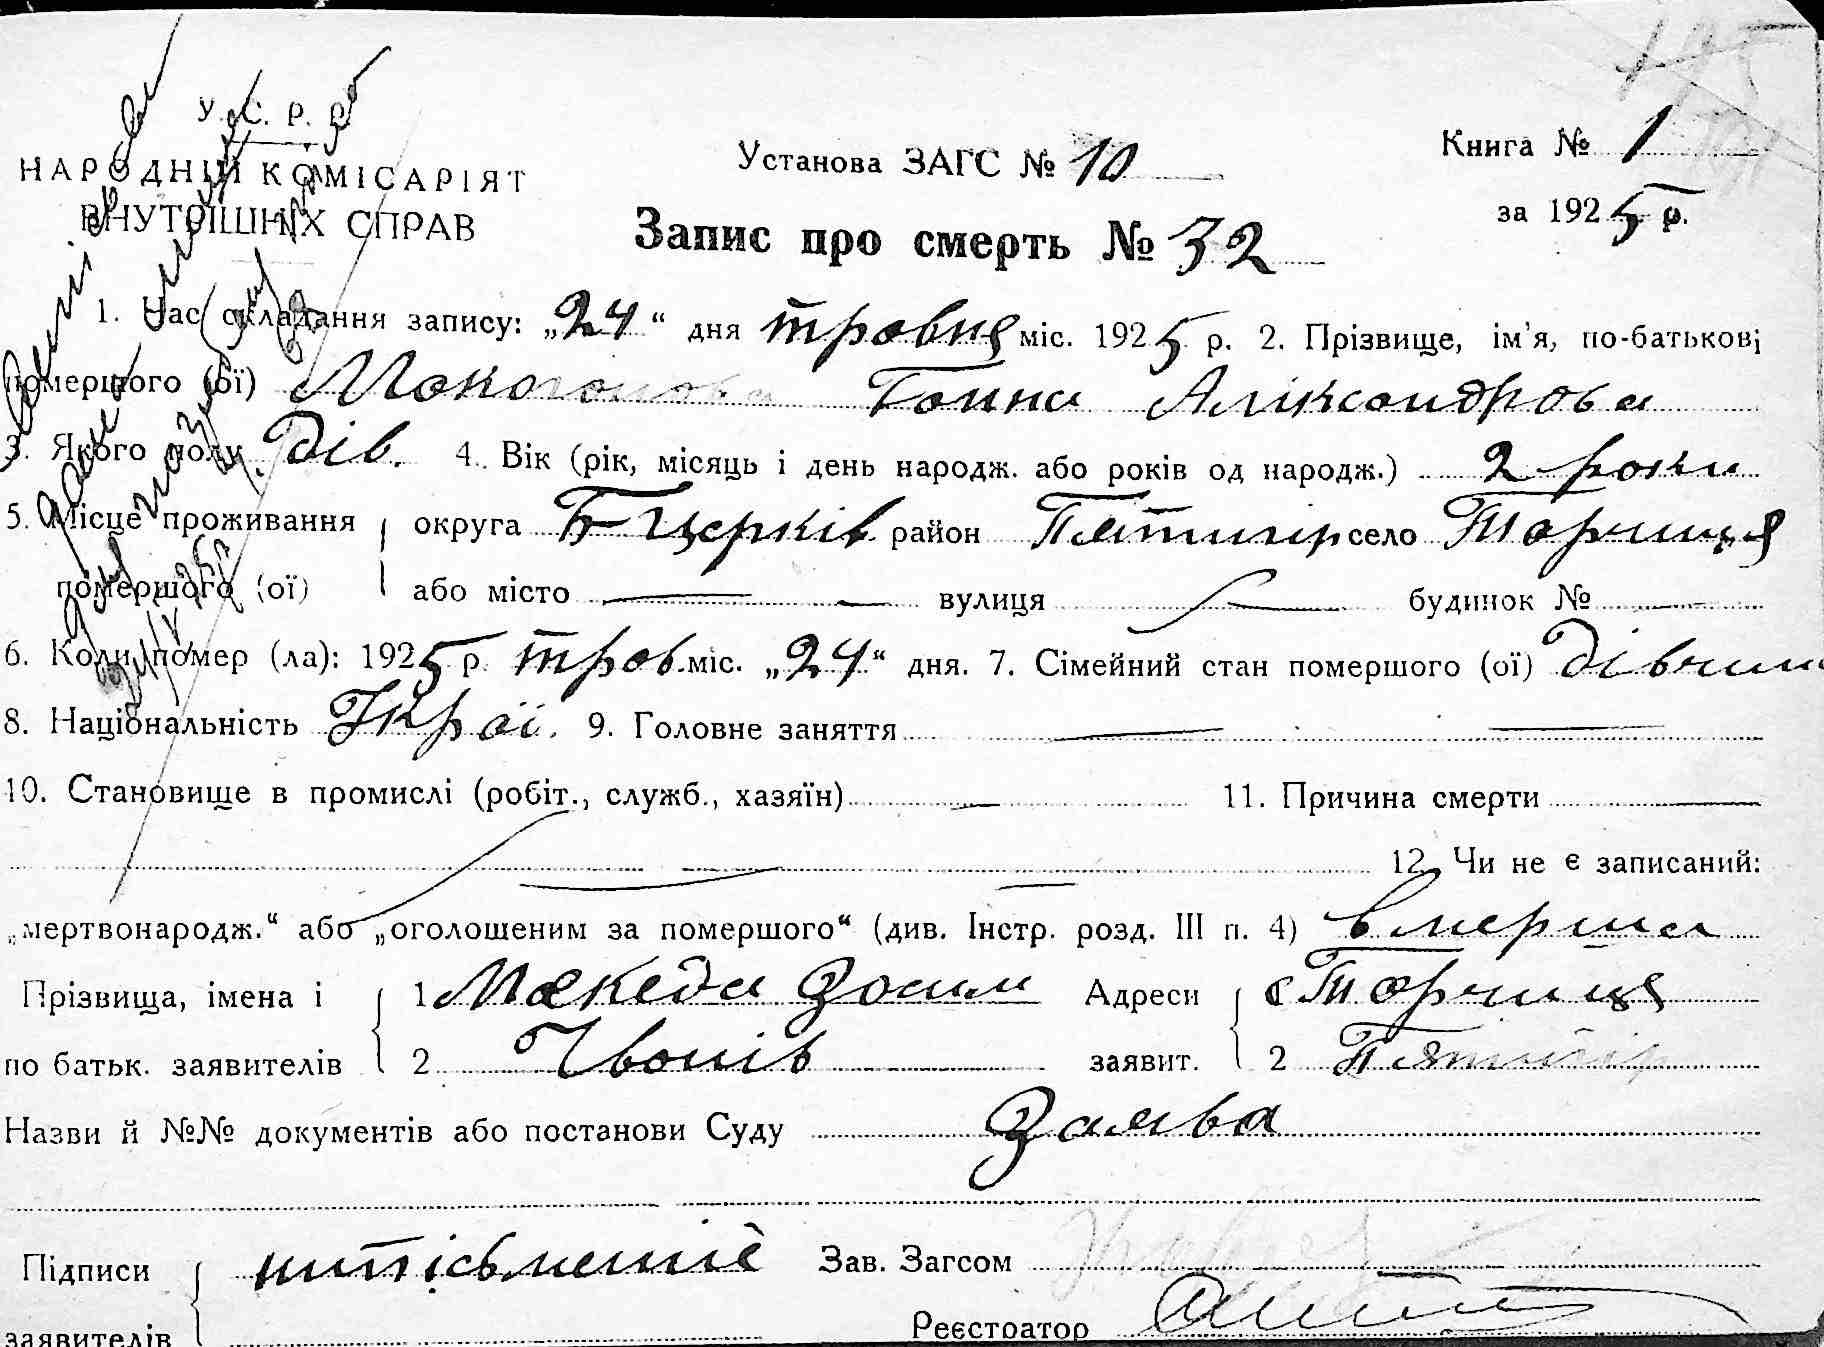 У. С. Р. Р.
НАРОДНІЙ КОМІСАРІЯТ
ВНУТРІШНІХ СПРАВ
Установа ЗАГС № 10
Книга № 1
за 1925 р.
Запис про смерть № 32
1. Час складання запису: „24“ дня травня міс. 1925 р. 2. Прізвище, ім'я, по-батькові
помершого (ої) Ганна Аліксандрова
3. Якого полу дів. 4. Вік (рік, місяць і день народж. або років од народж.) 2 роки
5. Місце проживання округа Б-Церків район Пятигір село Торчиця
помершого (ої) або місто — вулиця будинок №
6. Коли помер (ла): 1925 р. трав. міс. „24“ дня. 7. Сімейний стан помершого (ої) дівчина
8. Національність Украї. 9. Головне заняття
10. Становище в промислі (робіт., служб., хазяїн) 11. Причина смерти
12. Чи не є записаний:
„мертвонародж.“ або „оголошеним за помершого“ (див. Інстр. розд. III п. 4) вмерша
Прізвища, імена і 1 Македа Зосим Адреси с Торчиця
по батьк. заявителів 2 заявит. 2 Пятигір
Назви й №№ документів або постанови Суду Заява
Підписи нипісьменіє Зав. Загсом
заявителів Реєстратор